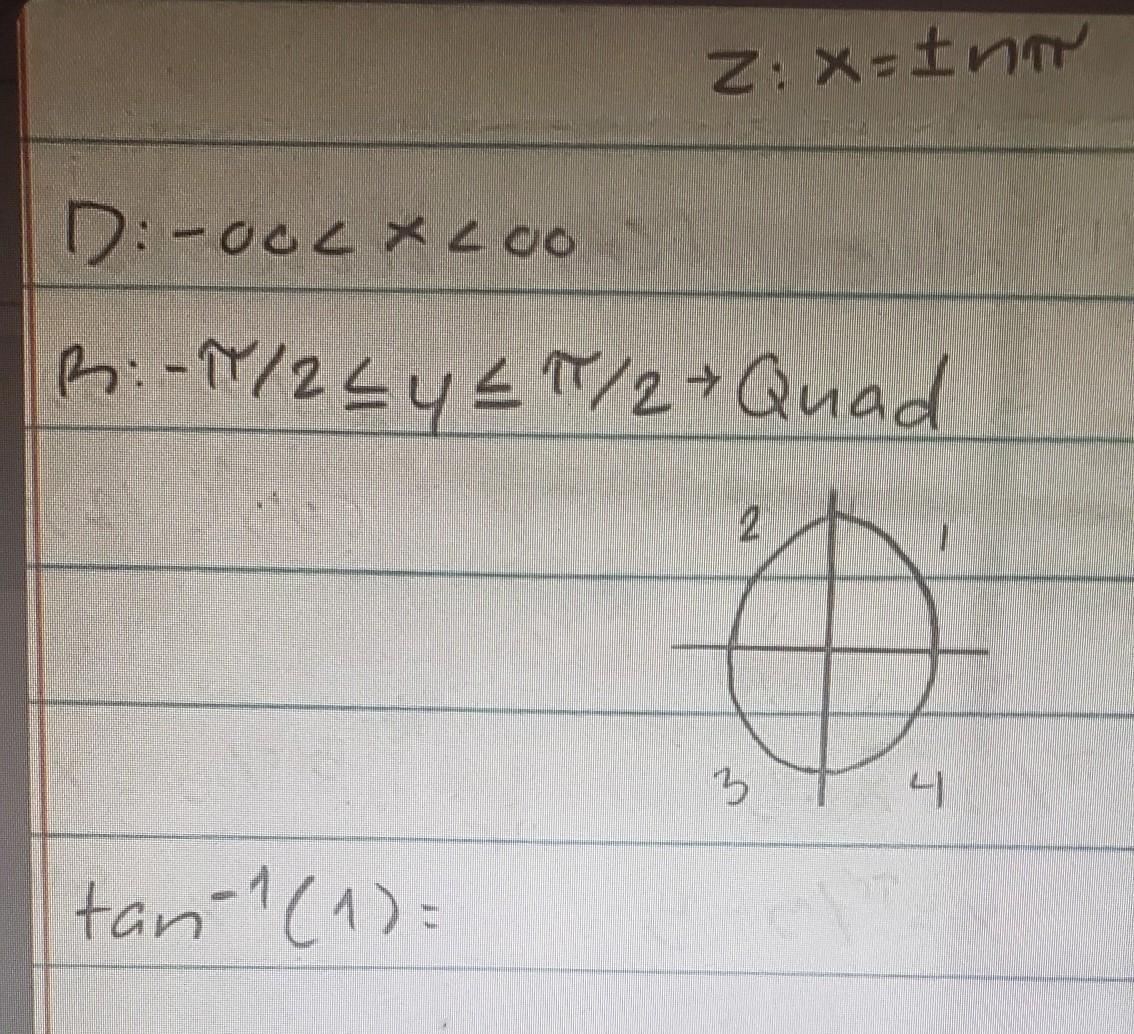 Z: x=±nπ
D: -∞ < x < ∞
R: -π/2 ≤ y ≤ π/2 → Quad
2 1
3 4
tan⁻¹(1)=